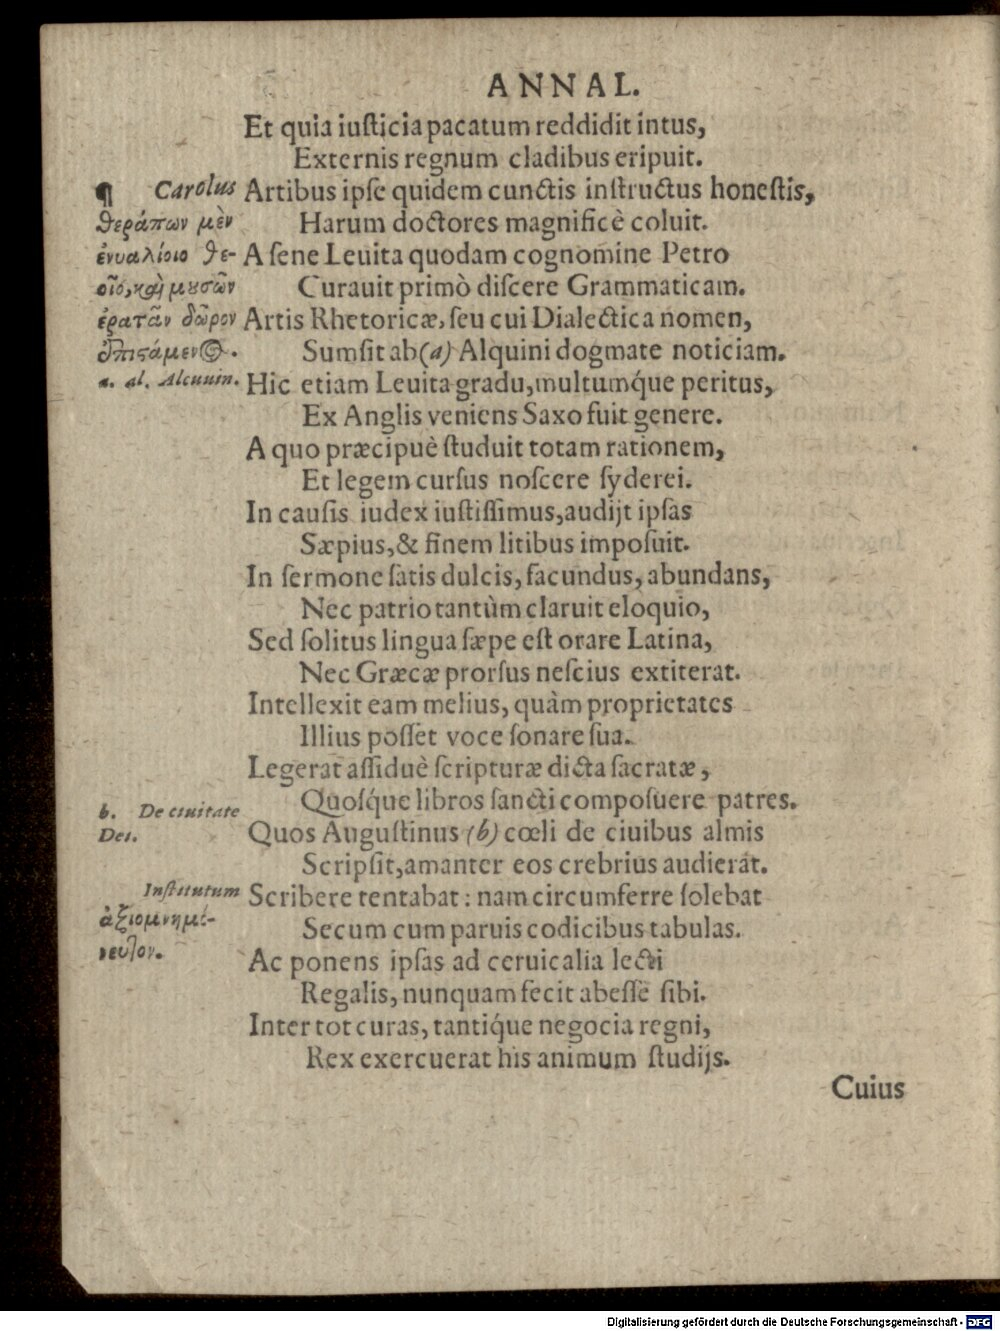 ANNAL.
Et quia iusticia pacatum reddidit intus,
Externis regnum cladibus eripuit.
¶ Carolus
θεράπων μὲν
ἐνυαλίοιο θε-
οῖο, καὶ μουσῶν
ἐρατᾶν δῶρον
ἐπιςάμενος.
a. al. Alcuuin.
Artibus ipse quidem cunctis instructus honestis,
Harum doctores magnificè coluit.
A sene Leuita quodam cognomine Petro
Curauit primò discere Grammaticam.
Artis Rhetoricæ, seu cui Dialectica nomen,
Sumsit ab (a) Alquini dogmate noticiam.
Hic etiam Leuita gradu, multumq́ue peritus,
Ex Anglis veniens Saxo fuit genere.
A quo præcipuè studuit totam rationem,
Et legem cursus noscere syderei.
In causis iudex iustissimus, audijt ipsas
Sæpius, & finem litibus imposuit.
In sermone satis dulcis, facundus, abundans,
Nec patrio tantùm claruit eloquio,
Sed solitus lingua sæpe est orare Latina,
Nec Græcæ prorsus nescius extiterat.
Intellexit eam melius, quàm proprietates
Illius posset voce sonare sua.
Legerat assiduè scripturæ dicta sacratæ,
Quosq́ue libros sancti composuere patres.
b. De ciuitate
Dei.
Quos Augustinus (b) cœli de ciuibus almis
Scripsit, amanter eos crebrius audierat.
Institutum
ἀξιομνημό-
νευτον.
Scribere tentabat: nam circumferre solebat
Secum cum paruis codicibus tabulas.
Ac ponens ipsas ad ceruicalia lecti
Regalis, nunquam fecit abesse sibi.
Inter tot curas, tantiq́ue negocia regni,
Rex exercuerat his animum studijs.
Cuius
Digitalisierung gefördert durch die Deutsche Forschungsgemeinschaft - DFG